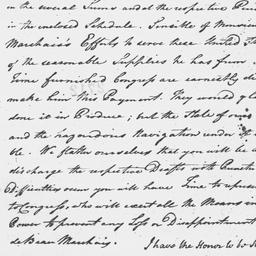 in the several Sums and at the respective Peri
in the enclosed Schedule. Sensible of Monsieu
Marchais's Efforts to serve these United St
of the seasonable Supplies he has from
Time furnished Congress are earnestly di
make him this Payment. They would gl
done it in Produce; but the State of our
and the hazardous Navigation under
ble. We flatter ourselves that you will be a
discharge the respective Drafts with Punctu
Difficulties occur you will have Time to represe
to Congress, who will exert all the Means in
Power to prevent any Loss or Disappointment
de Beau Marchais.
I have the Honor to be